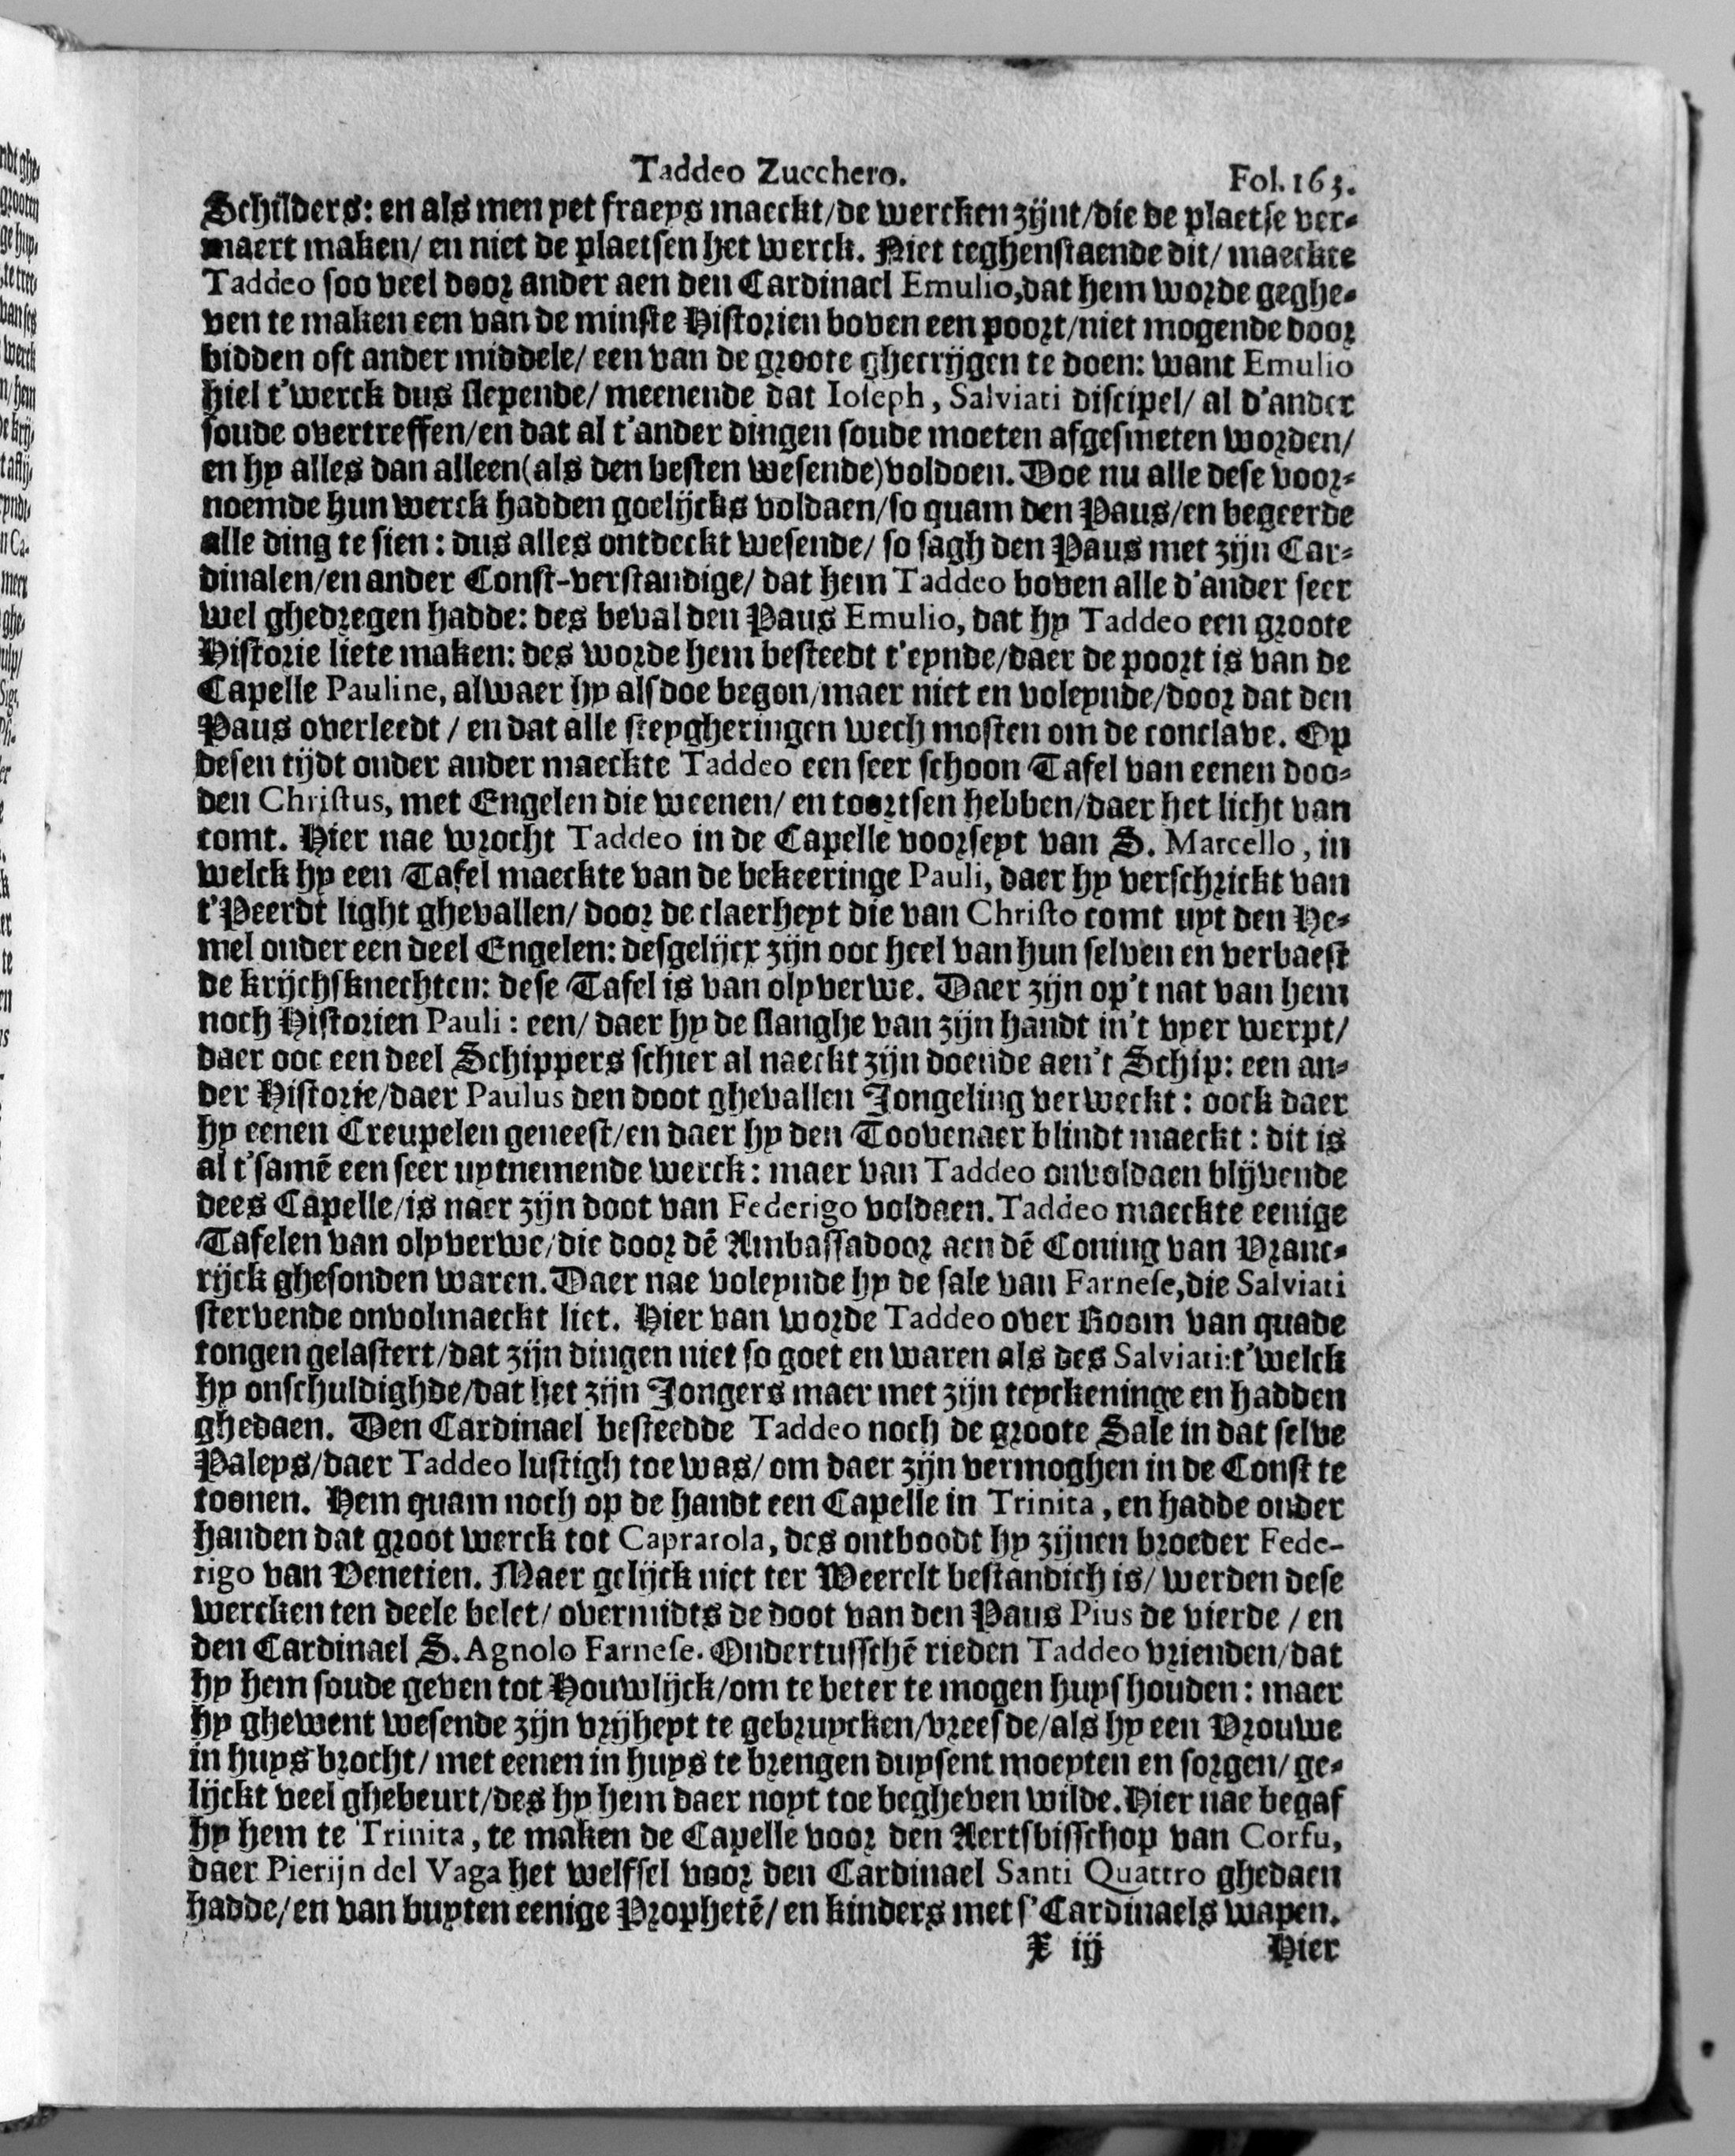 Taddeo Zucchero. Fol. 163.
Schilders: en als men yet fraeys maeckt/de wercken zijnt/die de plaetse ver-
maert maken/ en niet de plaetsen het werck. Niet teghenstaende dit/ maeckte
Taddeo soo veel door ander aen den Cardinael Emulio, dat hem worde geghe-
ven te maken een van de minste Historien boven een poort/niet mogende door
bidden oft ander middele/ een van de groote ghecrijgen te doen: want Emulio
hiel t'werck dus slepende/ meenende dat Ioseph, Salviati discipel/ al d'ander
soude overtreffen/en dat al t'ander dingen soude moeten afgesmeten worden/
en hy alles dan alleen (als den besten wesende) voldoen. Doe nu alle dese voor-
noemde hun werck hadden goelijcks voldaen/so quam den Paus/en begeerde
alle ding te sien: dus alles ontdeckt wesende/ so sagh den Paus met zijn Car-
dinalen/en ander Const-verstandige/ dat hem Taddeo boven alle d'ander seer
wel ghedregen hadde: des beval den Paus Emulio, dat hy Taddeo een groote
Historie liete maken: des worde hem besteedt t'eynde/daer de poort is van de
Capelle Pauline, alwaer hy alsdoe begon/maer niet en voleynde/door dat den
Paus overleedt / en dat alle steygheringen wech mosten om de conclave. Op
desen tijdt onder ander maeckte Taddeo een seer schoon Tafel van eenen doo-
den Christus, met Engelen die weenen/ en toortsen hebben/daer het licht van
comt. Hier nae wrocht Taddeo in de Capelle voorseyt van S. Marcello, in
welck hy een Tafel maeckte van de bekeeringe Pauli, daer hy verschrickt van
t'Peerdt light ghevallen/ door de claerheyt die van Christo comt uyt den He-
mel onder een deel Engelen: desgelijcx zijn ooc heel van hun selven en verbaest
de krijchsknechten: dese Tafel is van olyverwe. Daer zijn op't nat van hem
noch Historien Pauli: een/ daer hy de slanghe van zijn handt in't vyer werpt/
daer ooc een deel Schippers schier al naeckt zijn doende aen't Schip: een an-
der Historie/daer Paulus den doot ghevallen Jongeling verweckt: oock daer
hy eenen Creupelen geneest/en daer hy den Toovenaer blindt maeckt: dit is
al t'samē een seer uytnemende werck: maer van Taddeo onvoldaen blijvende
dees Capelle/is naer zijn doot van Federigo voldaen. Taddeo maeckte eenige
Tafelen van olyverwe/die door dē Ambassadoor aen dē Coning van Vranc-
rijck ghesonden waren. Daer nae voleynde hy de sale van Farnese, die Salviati
stervende onvolmaeckt liet. Hier van worde Taddeo over Room van quade
tongen gelastert/dat zijn dingen niet so goet en waren als des Salviati: t'welck
hy onschuldighde/dat het zijn Jongers maer met zijn teyckeninge en hadden
ghedaen. Den Cardinael besteedde Taddeo noch de groote Sale in dat selve
Paleys/daer Taddeo lustigh toe was/ om daer zijn vermoghen in de Const te
toonen. Hem quam noch op de handt een Capelle in Trinita, en hadde onder
handen dat groot werck tot Caprarola, des ontboodt hy zijnen broeder Fede-
rigo van Venetien. Maer gelijck niet ter Weerelt bestandich is/ werden dese
wercken ten deele belet/ overmidts de doot van den Paus Pius de vierde / en
den Cardinael S. Agnolo Farnese. Ondertusschē rieden Taddeo vrienden/dat
hy hem soude geven tot Houwlijck/om te beter te mogen huyshouden: maer
hy ghewent wesende zijn vrijheyt te gebruycken/vreesde/als hy een Vrouwe
in huys brocht/ met eenen in huys te brengen duysent moeyten en sorgen/ ge-
lijckt veel ghebeurt/des hy hem daer noyt toe begheven wilde. Hier nae begaf
hy hem te Trinita, te maken de Capelle voor den Aertsbisschop van Corfu,
daer Pierijn del Vaga het welfsel voor den Cardinael Santi Quattro ghedaen
hadde/en van buyten eenige Prophetē/ en kinders met s'Cardinaels wapen.
X iij Hier